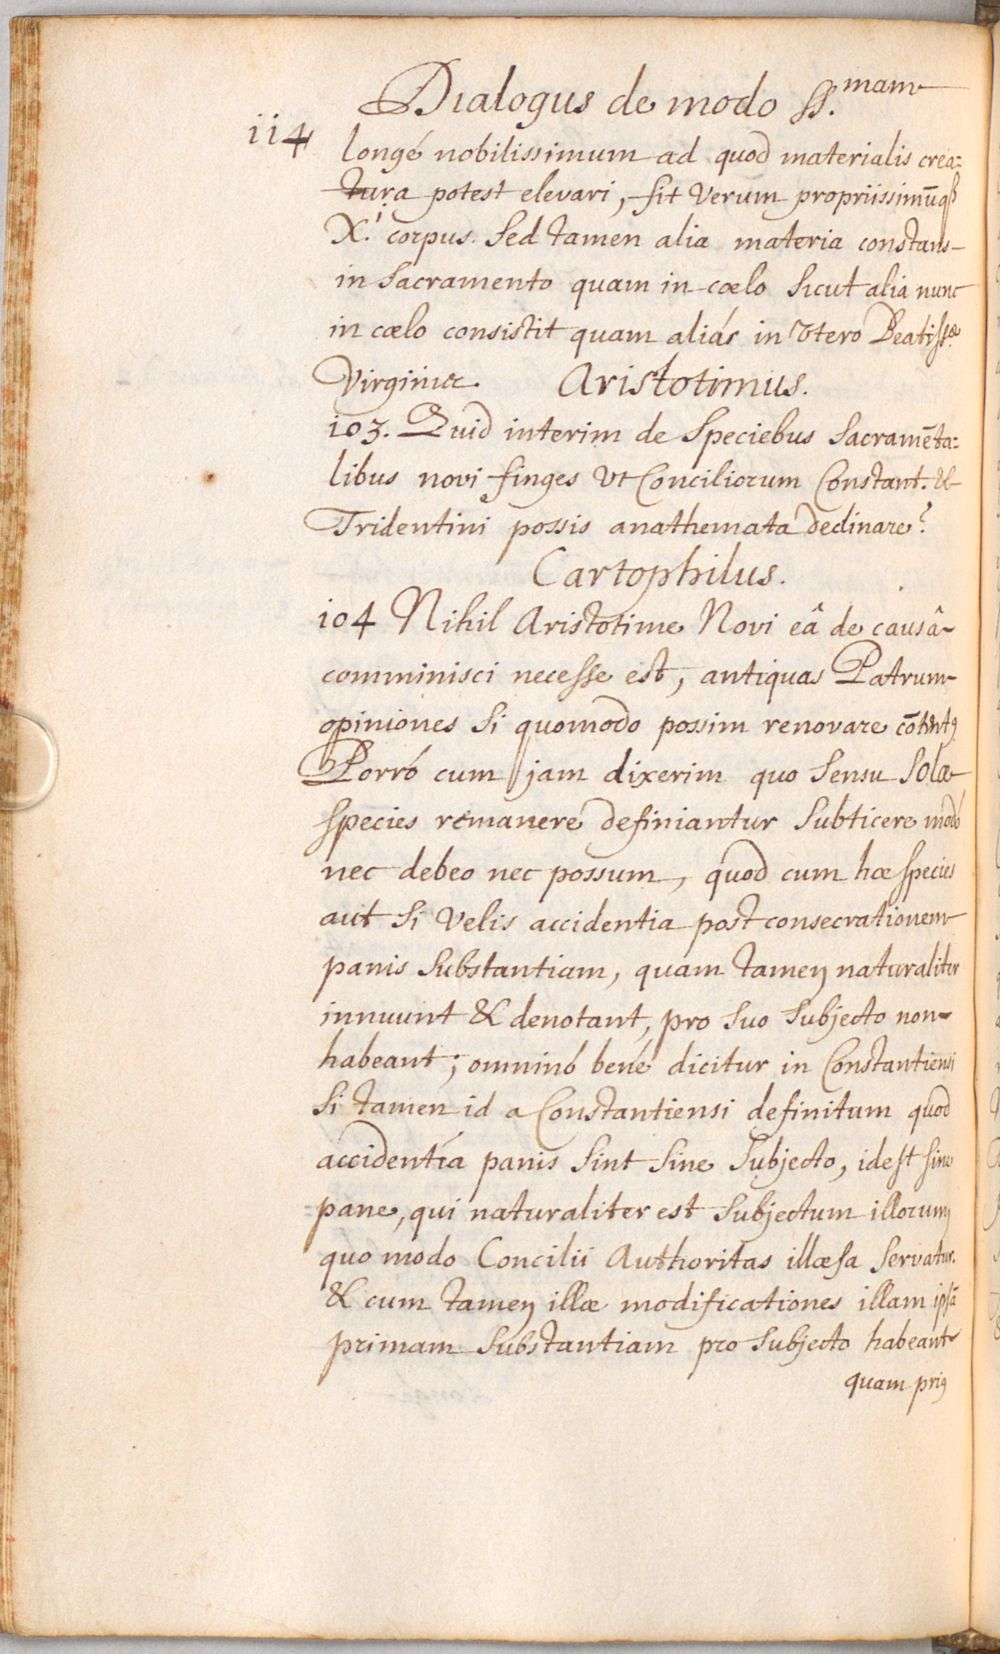 Dialogus de modo SS.mam
114
longé nobilissimum ad quod materialis crea=
tura potest elevari, fit Verum propriissimūqȝ
X.i corpus. Sed tamen alia materia constans
in Sacramento quam in cœlo Sicut alia nunc
in cœlo consistit quam aliás in Vtero Beatissæ
Virginis. Aristotimus.
103. Quid interim de Speciebus Sacramēta=
libus novi finges Vt Conciliorum Constant. &
Tridentini possis anathemata declinare?
Cartophilus.
104 Nihil Aristotime Novi eâ de causâ
comminisci necesse est, antiquas Patrum
opiniones Si quomodo possim renovare cōtentꝰ
Porró cum jam dixerim quo Sensu Solæ
Species remanere definiantur Subticere modó
nec debeo nec possum, quod cum hæ Species
aut Si Velis accidentia post consecrationem
panis Substantiam, quam tamen naturaliter
innuunt & denotant, pro Suo Subjecto non
habeant; omninó bené dicitur in Constantiensi
Si tamen id a Constantiensi definitum quod
accidentia panis Sint Sine Subjecto, idest Sine
pane, qui naturaliter est Subjectum illorum
quo modo Concilii Authoritas illæsa Servatur.
& cum tamen illæ modificationes illam ipsā
primam Substantiam pro Subjecto habeant
quam priꝰ